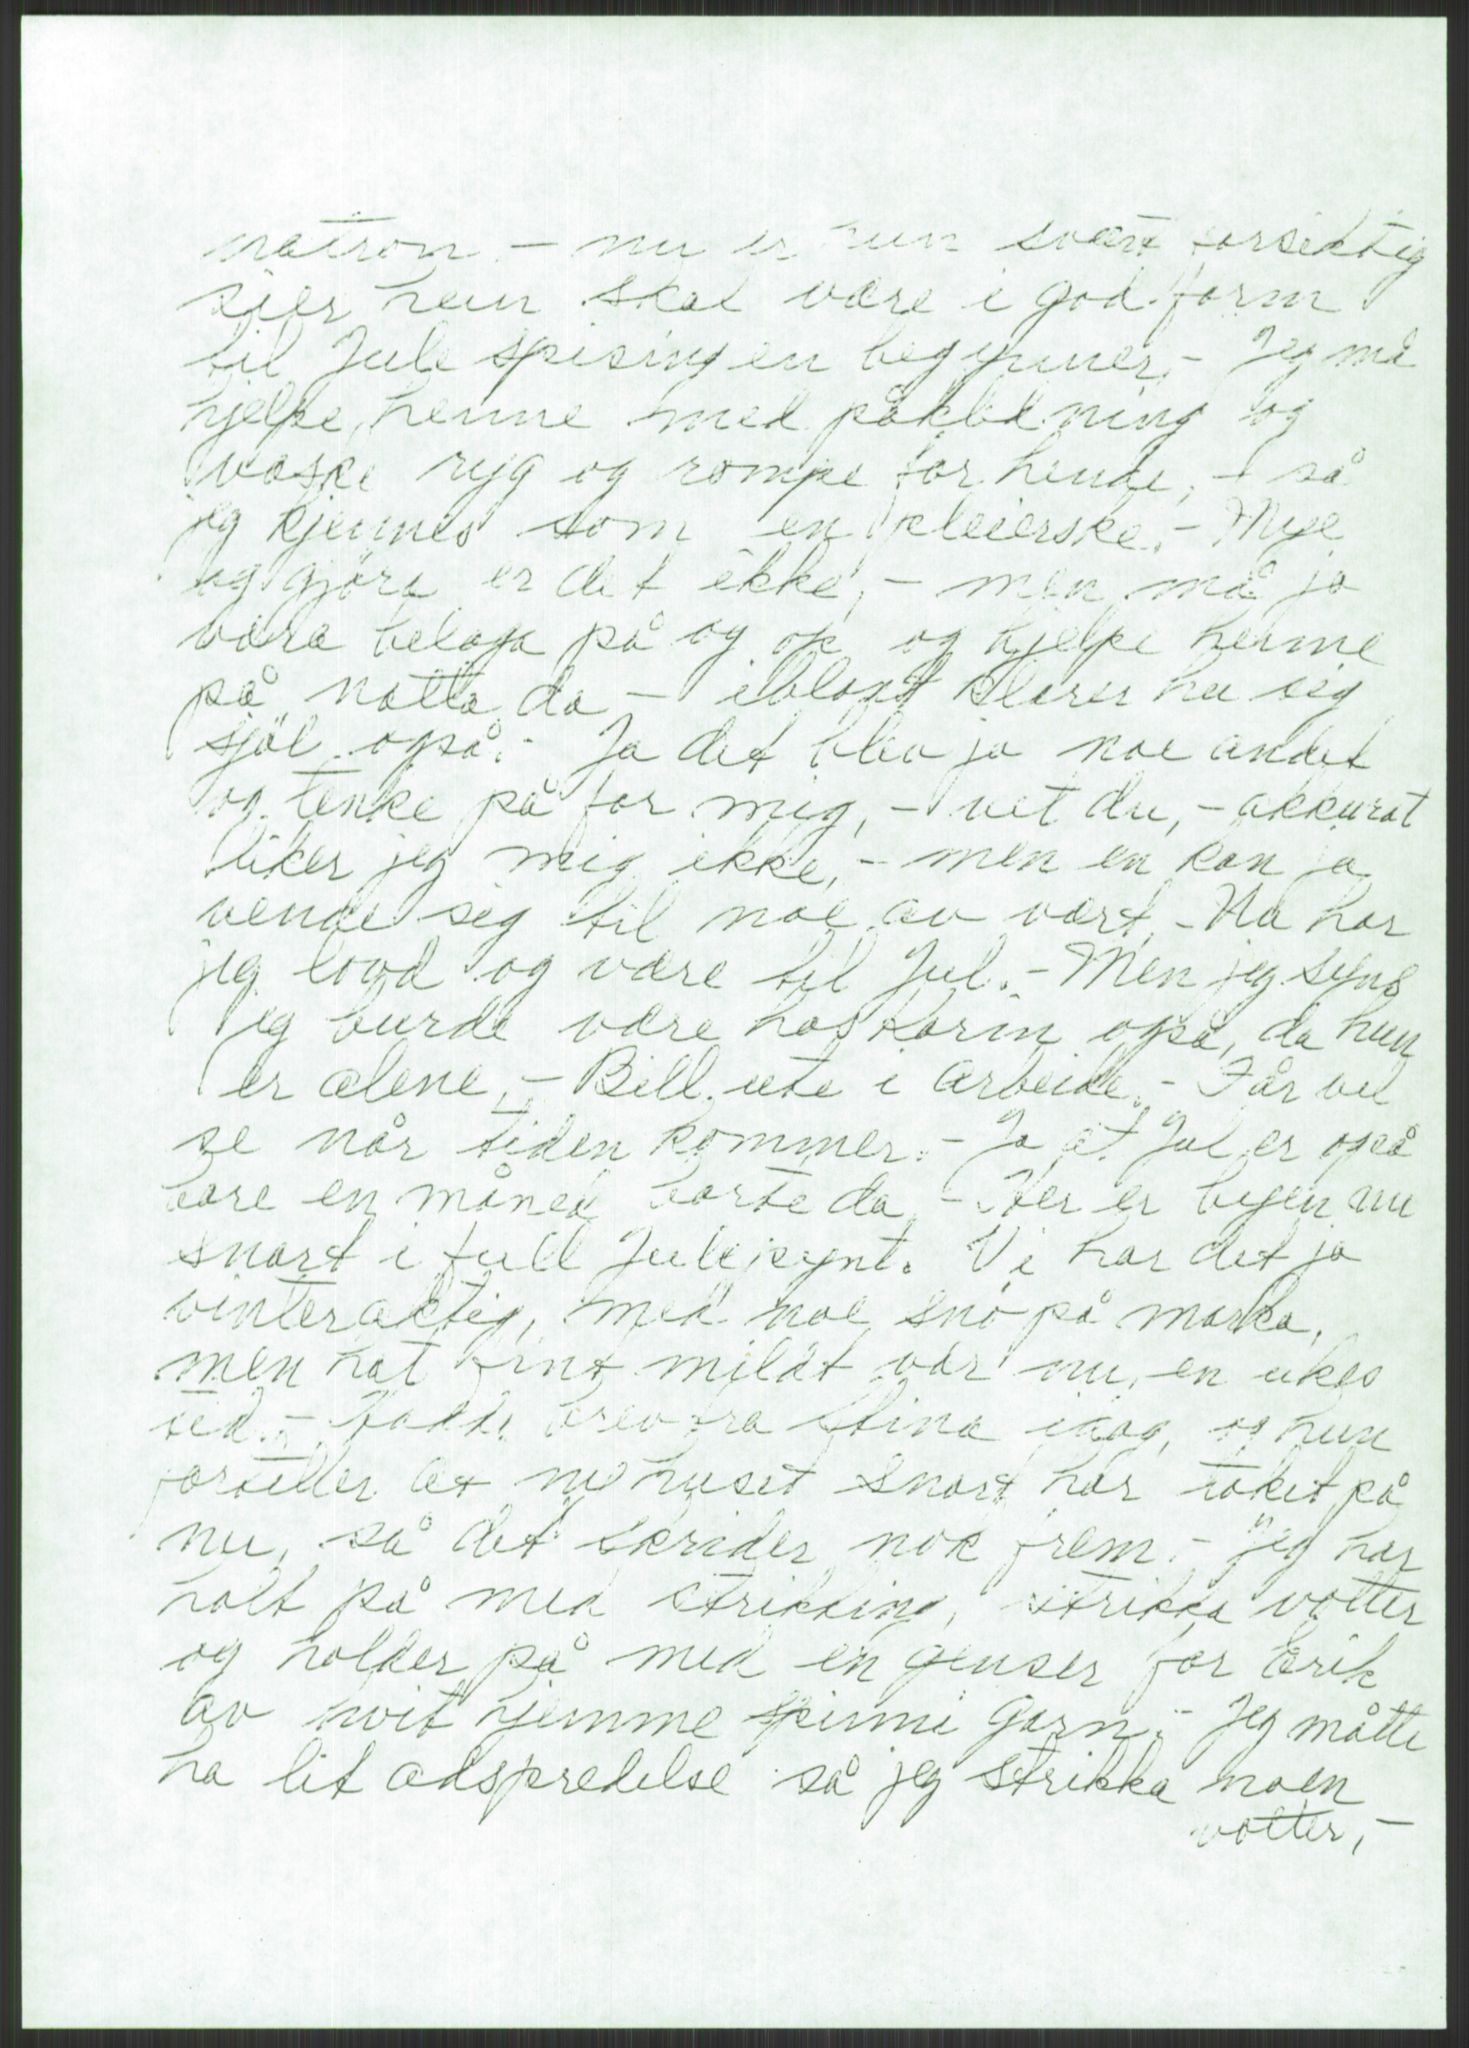 natron. - nu er hun svært forsiktig
sier hun skal være i god form
til Jule spisingen begynner, - Jeg må
hjelpe henne med påkledning og
vaske ryg og rompe for hende, - så
jeg kjennes som en pleierske. - Mye
og gjöra er det ikke, - men må jo
være belaga på og op og hjelpe henne
på natta da - iblant klarer hu sig
sjöl også. - Ja det blev jo noe andet
og tenke på for mig, - vet du, - akkurat
liker jeg mig ikke, - men en kan jo
vende sig til noe av vært. - Nu har
jeg lovd og være til Jul. - Men jeg syns
jeg burde være hos Karin også, da hun
er alene, - Bill ute i arbeide. - Får vel
se når tiden kommer. - Ja at Jul er også
bare en måned borte da, - Her er byen nu
snart i full Julepynt. Vi har det jo
vinteraktig, med noe snö på marka,
men hat fint mildt vær nu, en ukes
tid. - Hadde brev fra Stina idag, og hun
forteller at ny huset snart har taket på
nu, så det skrider nok frem. - Jeg har
holt på med strikking, strikka votter
og holder på med en genser for Erik
av hvit hjemme spinni garn. - Jeg måtte
ha lit adspredelse så jeg strikka noen
votter, -